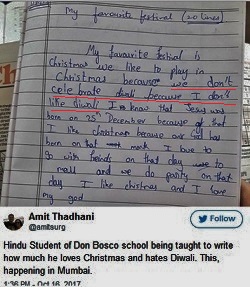 My favourite festival (20 lines)
My favourite festival is
Christmas we like to play in
Christmas because we don't
celebrate diwali because I don't
like Diwali I know that Jesus was
born on 25th December because of that
I like christmas because our God has
born on that I love to
go with friends on that day we to
mall and we do party on that
day I like christmas and I love
my god
Amit Thadhani
@amitsurg
Follow
Hindu Student of Don Bosco school being taught to write
how much he loves Christmas and hates Diwali. This,
happening in Mumbai.
1:36 PM - Oct 16, 2017